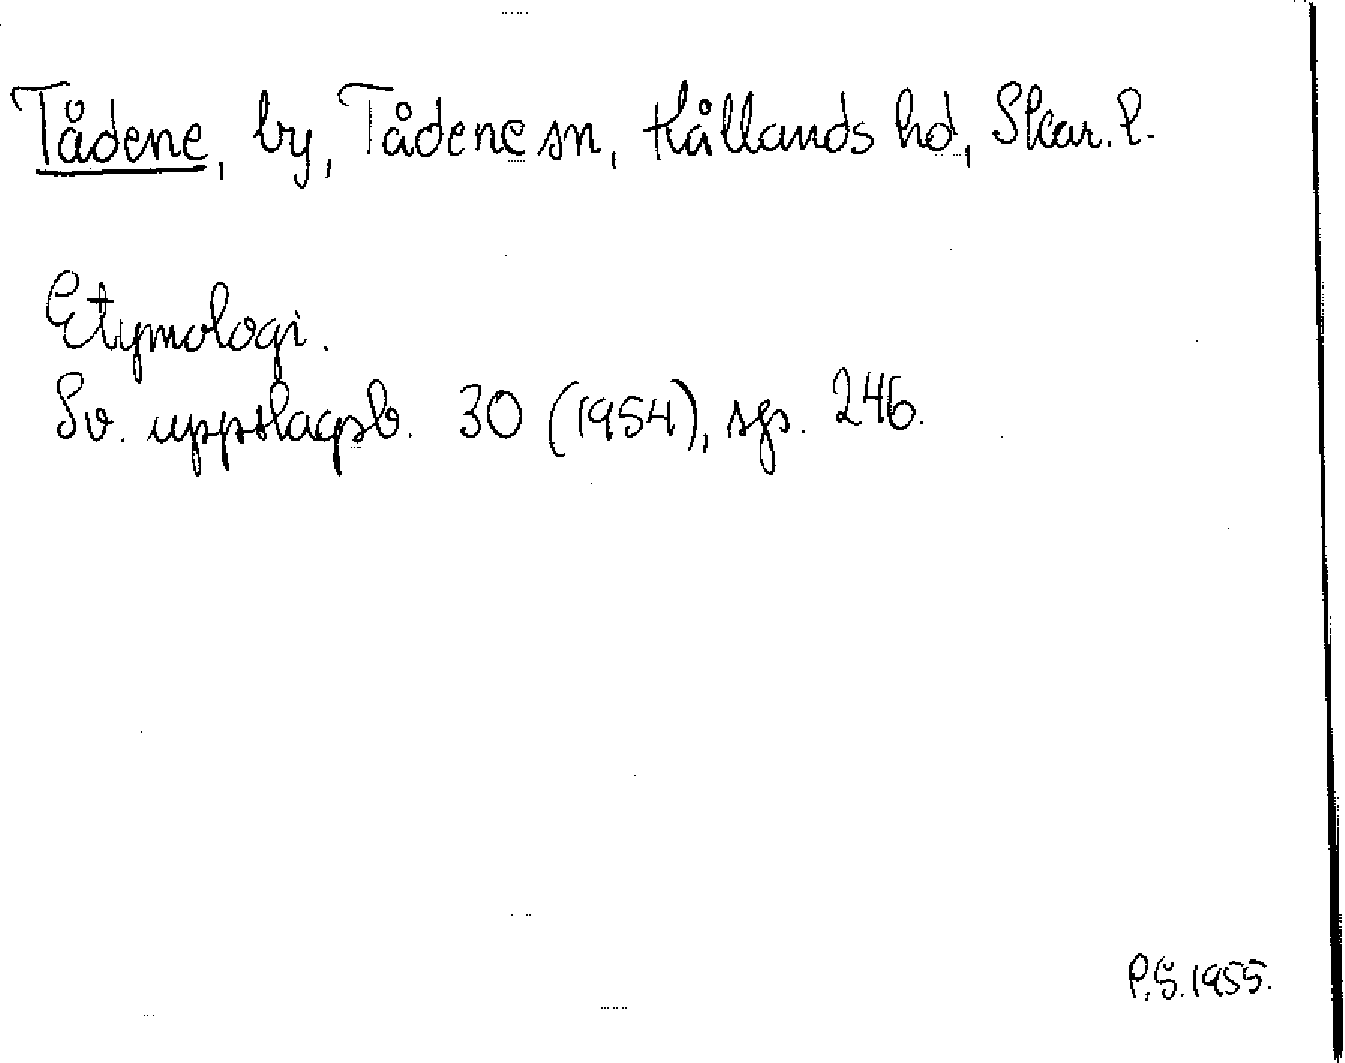 Tådene, by, Tådene sn, Kållands hd, Skar. l.
Etymologi.
Sv. uppslagsb. 30 (1954), sp. 246.
P.S. 1955.